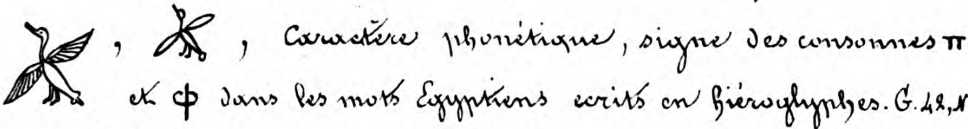 , , Caractère phonétique, signe des consonnes ⲡ
et ⲫ dans les mots Egyptiens ecrits en hiéroglyphes. G. 42, N